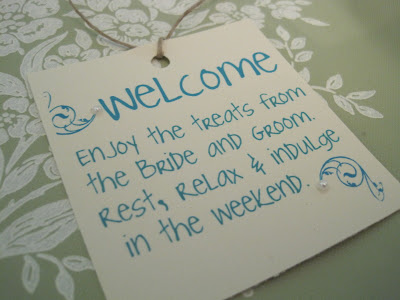 Welcome
Enjoy the treats from
the Bride and Groom.
Rest, Relax & Indulge
in the weekend.